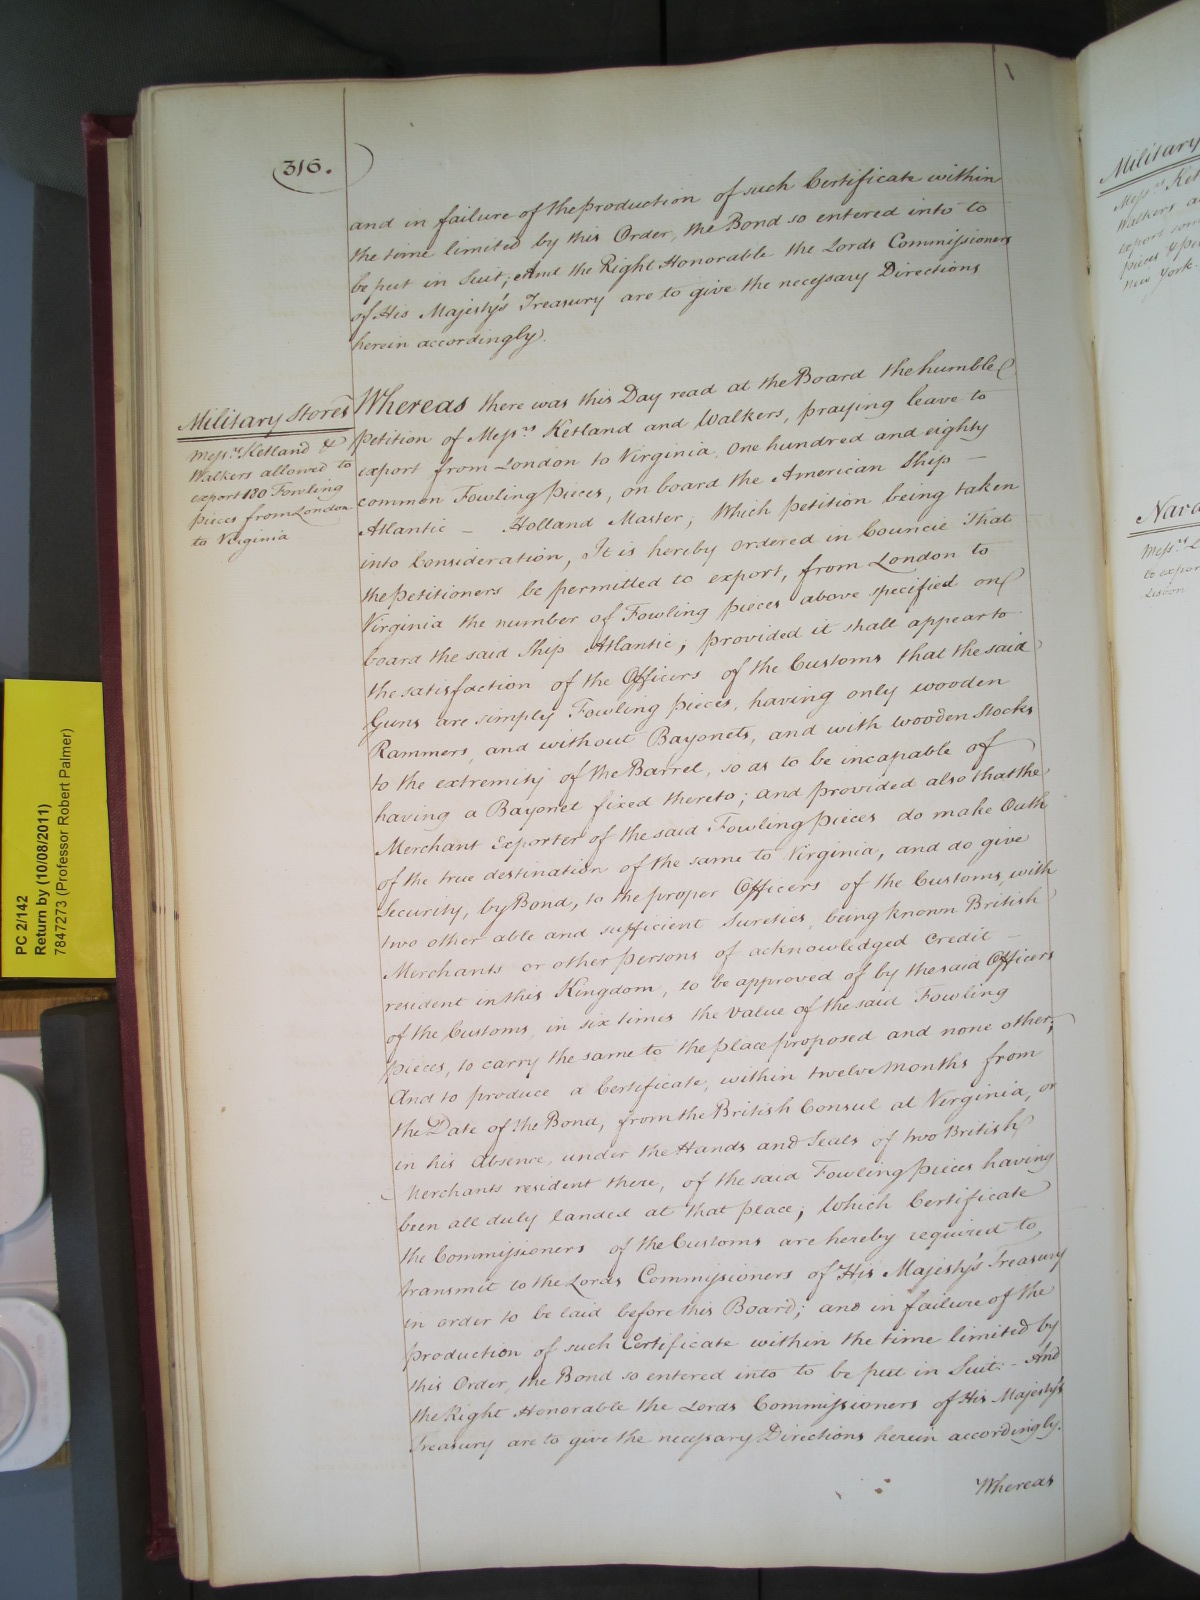 316.
and in failure of the production of such Certificate within
the time limited by this Order, the Bond so entered into to
be put in Suit; And the Right Honorable the Lords Commissioners
of His Majesty's Treasury are to give the necessary Directions
herein accordingly.
Military Stores
Messrs. Ketland &
Walkers allowed to
export 180 Fowling
pieces from London
to Virginia
Whereas there was this Day read at the Board the humble
Petition of Messrs. Ketland and Walkers, praying leave to
export from London to Virginia, One hundred and eighty
common Fowling pieces, on board the American Ship —
Atlantic — Holland Master; Which petition being taken
into Consideration, It is hereby ordered in Council That
the petitioners be permitted to export, from London to
Virginia the number of Fowling pieces above specified on
board the said Ship Atlantic; provided it shall appear to
the satisfaction of the Officers of the Customs that the said
Guns are simply Fowling pieces, having only wooden
Rammers, and without Bayonets, and with wooden Stocks
to the extremity of the Barrel, so as to be incapable of
having a Bayonet fixed thereto; and provided also that the
Merchant Exporter of the said Fowling pieces do make Oath
of the true destination of the same to Virginia, and do give
Security, by Bond, to the proper Officers of the Customs, with
two other able and sufficient Sureties, being known British
Merchants or other persons of acknowledged Credit —
resident in this Kingdom, to be approved of by the said Officers
of the Customs, in six times the value of the said Fowling
pieces, to carry the same to the place proposed and none other;
And to produce a Certificate, within twelve Months from
the Date of the Bond, from the British Consul at Virginia, or
in his Absence, under the Hands and Seals of two British
Merchants resident there, of the said Fowling pieces having
been all duly landed at that place; Which Certificate
the Commissioners of the Customs are hereby required to
transmit to the Lords Commissioners of His Majesty's Treasury
in order to be laid before this Board; and in failure of the
production of such Certificate within the time limited by
this Order, the Bond so entered into to be put in Suit: - And
the Right Honorable the Lords Commissioners of His Majesty's
Treasury are to give the necessary Directions herein accordingly.
Whereas
PC 2/142
Return by (10/08/2011)
7847273 (Professor Robert Palmer)
Military
Messrs. Ket
Walkers
export
pieces
New York.
Messrs.
to expor
Lisbon